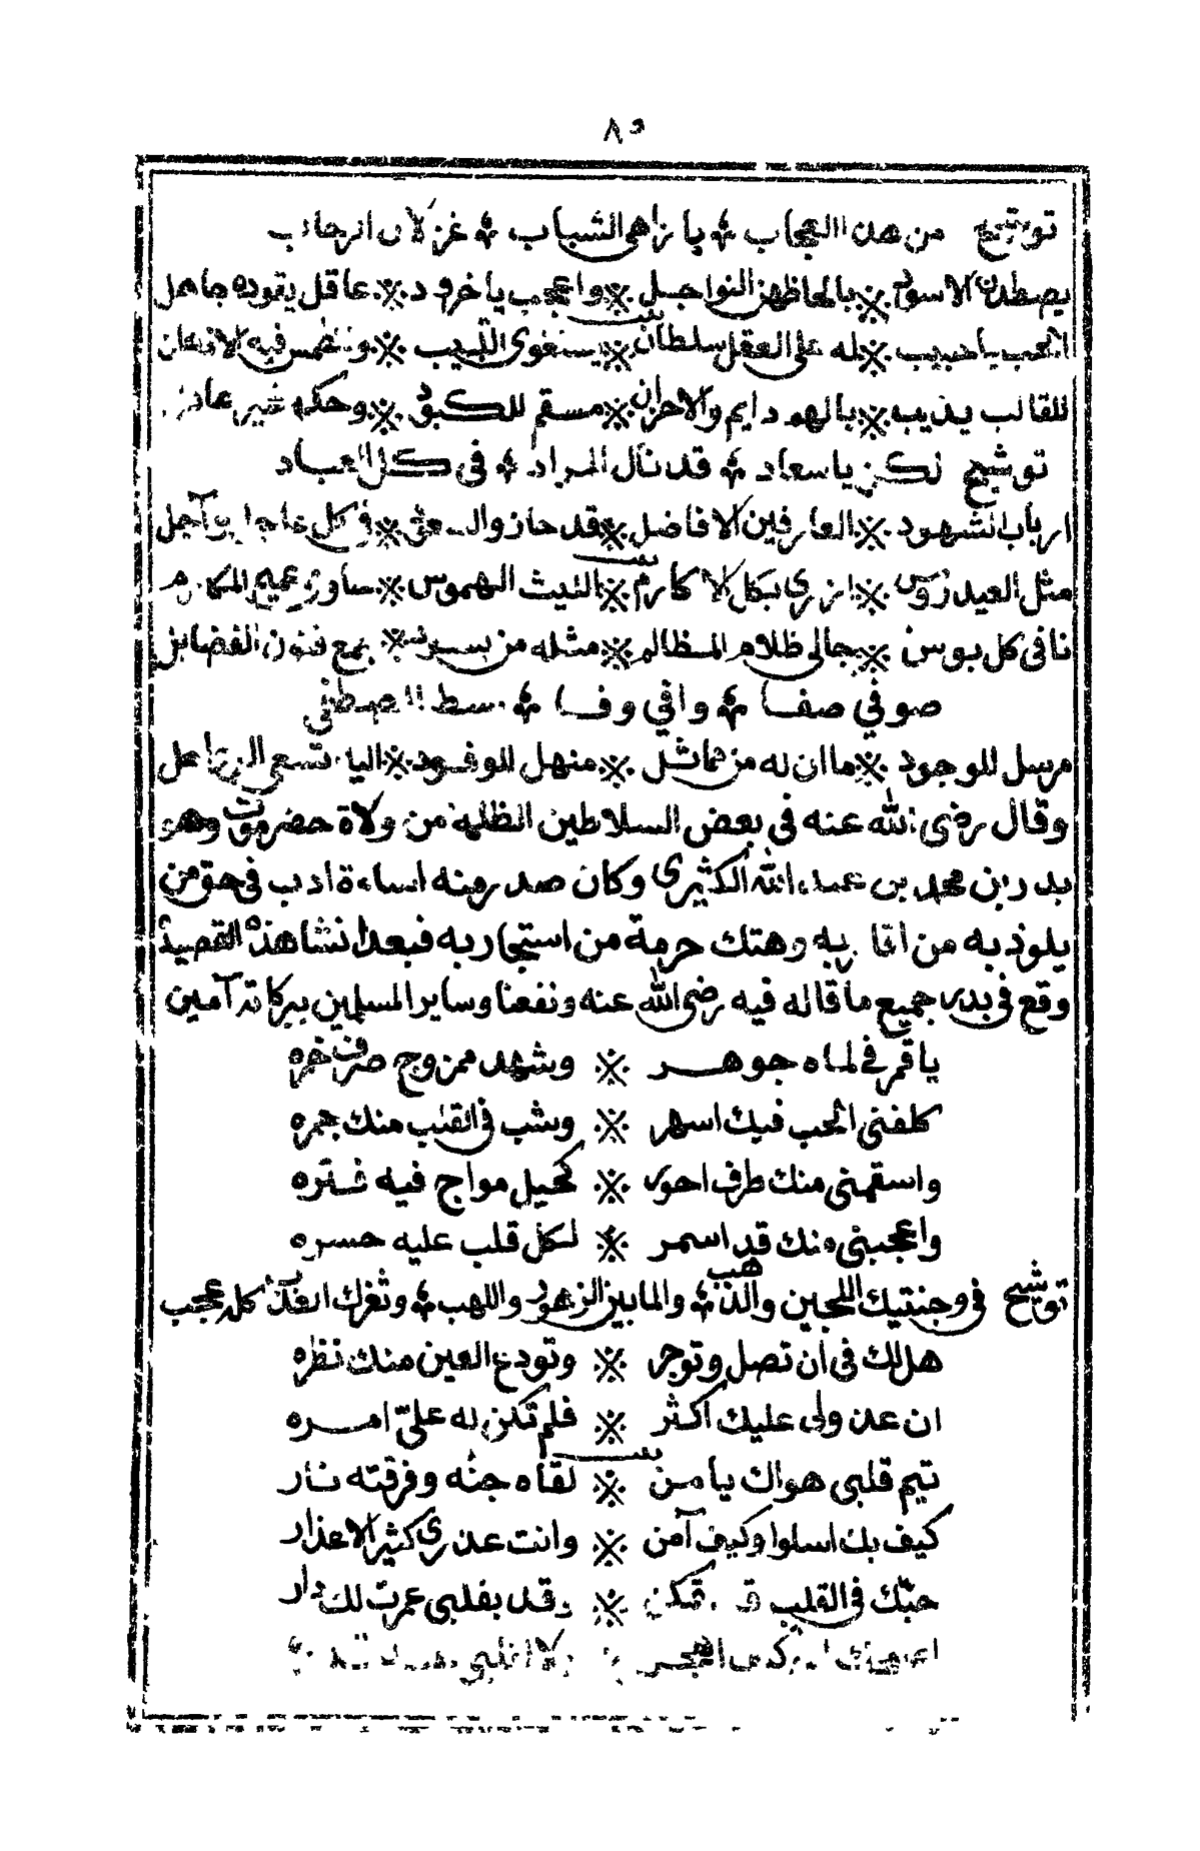 ٨٥
توشيح من هذا العجاب ❊ يا زاهى الشباب ❊ غزلان
يصطدن الاسود ※ بالحاظهن النواجل ※ واعجب يا خرود ※ عاقل يقوده جاهل
الحب يا حبيب ※ له على العقل سلطان ※ يستغوى اللبيب ※ وتنطمس فيه الاذهان
للقالب يذيب ※ بالهم دايم والاحزان ※ مسقم للكبود ※ وحكمه غير عادل
توشيح لكن يا سعاد ❊ قد نال المراد ❊ فى كل العباد
ارباب الشهود ※ العارفين الافاضل ※ قد حازوا ※ فى كل عاجل وآجل
مثل العيدروس ※ ازرى بكل الاكارم ※ الليث الهموس ※ حاوى عميم المكارم
نافى كل بوس ※ جالى ظلام المظالم ※ مثله من يسود ※ يجمع فنون الفضايل
صوفي صفا ❊ وافي وفا ❊ سبط المصطفى
مرسل للوجود ※ ما ان له من مماثل ※ منهل للوفود ※ اليه تسعى الرواحل
وقال رضى الله عنه فى بعض السلاطين الظلمة من ولاة حضرموت وهو
بدر بن محمد بن عبد الله الكثيرى وكان صدر منه اساءة ادب فى حق من
يلوذ به من اقاربه وهتك حرمة من استجار به فبعد انشا هذه القصيدة
وقع فى بدر جميع ما قاله فيه رضى الله عنه ونفعنا وساير المسلمين ببركاته آمين
يا قمر فى لماه جوهر ※ وشهد ممزوج صرف خمره
كلفنى الحب فيك اسهر ※ وشب فى القلب منك جمره
واسقمنى منك طرف احور ※ كحيل مواج فيه فتره
واعجبنى منك قد اسمر ※ لكل قلب عليه حسره
توشيح فى وجنتيك اللجين والذهب ❊ والمابين الزهور واللهب ❊ وثغرك العذب كله عجب
هل لك فى ان تصل وتوجر ※ وتودع العين منك نظره
ان عذولى عليك اكثر ※ فلم تكن له علىّ امره
تيم قلبى هواك يا من ※ لقاه جنه وفرقته نار
كيف بك اسلوا وكيف آمن ※ وانت عذرى كثير الاعذار
حبّك فى القلب قد تمكن ※ وقد بقلبى عمرت لك دار